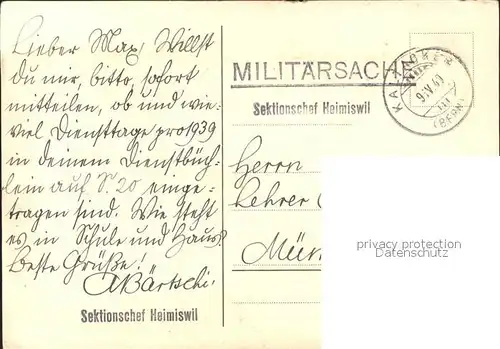 Lieber Max! Willst
du mir, bitte, sofort
mitteilen, ob und wie-
viel Diensttage pro 1939
in deinem Dienstbüch-
lein auf S. 20 einge-
tragen sind. Wie steht
es in Schule und Haus?
Beste Grüße!
ABärtschi.
Sektionschef Heimiswil
MILITÄRSACHE
Sektionschef Heimiswil
KALTACKER
9.IV.40
(BERN)
Herrn
Lehrer
privacy protection
Datenschutz